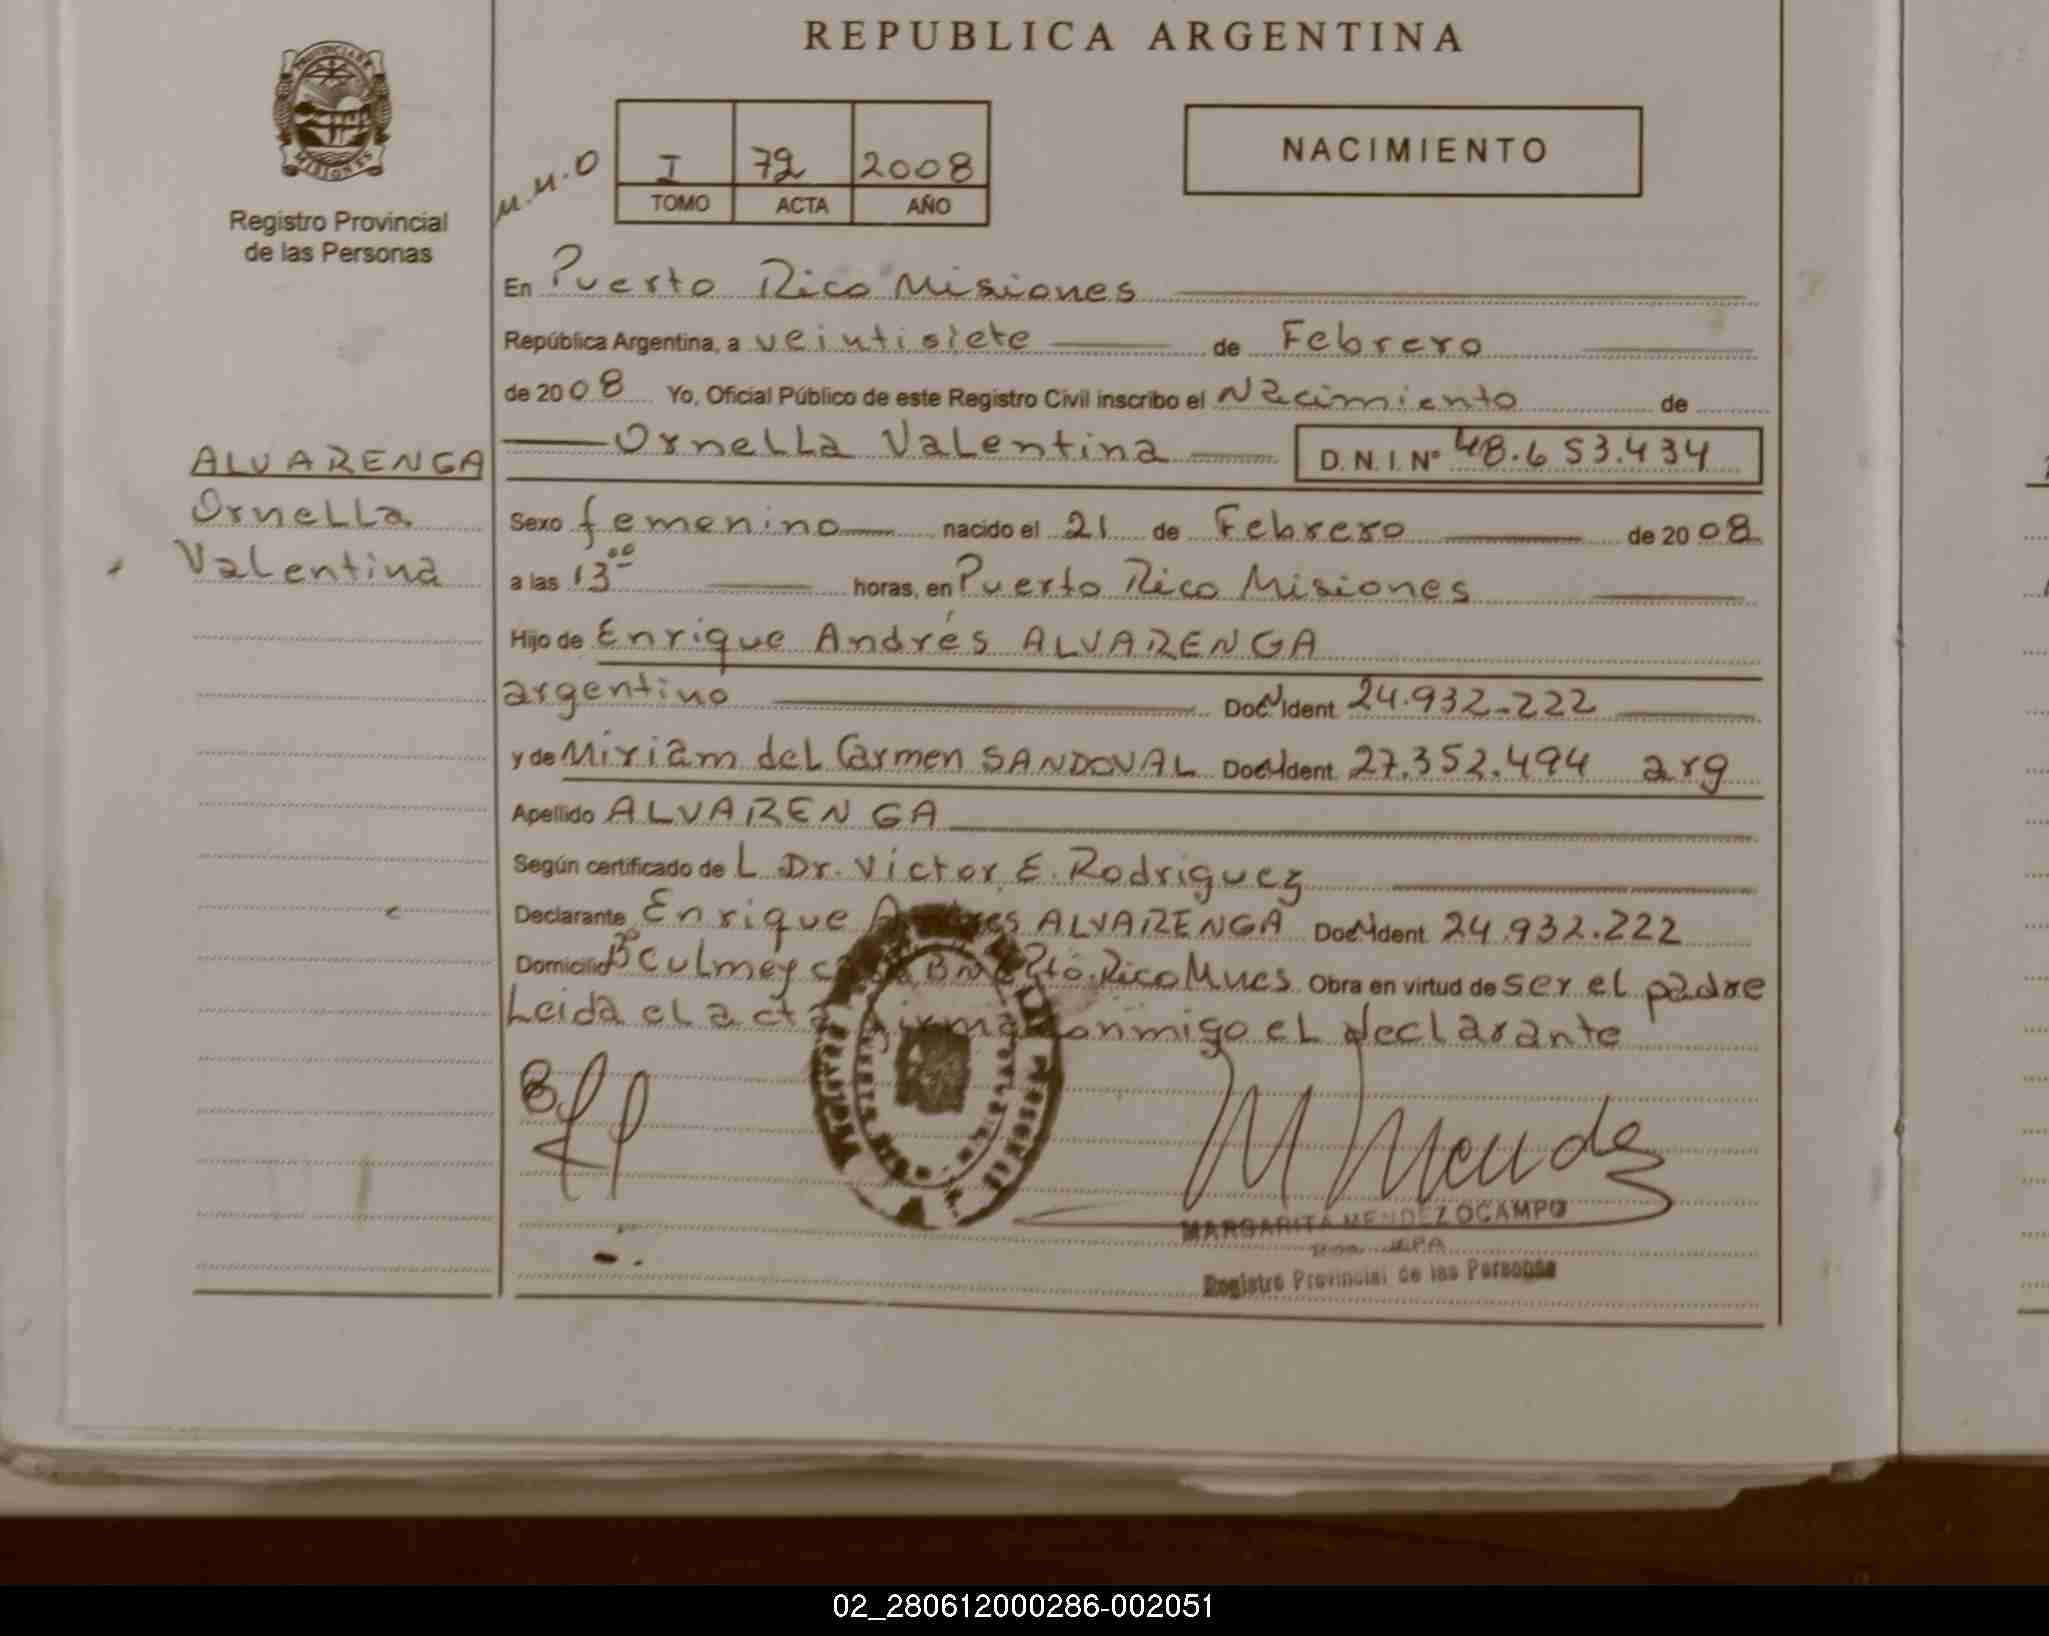 REPUBLICA ARGENTINA
PROVINCIA DE
MISIONES
Registro Provincial
de las Personas
M.M.O
I 72 2008
TOMO ACTA AÑO
NACIMIENTO
En Puerto Rico Misiones
República Argentina, a veintisiete de Febrero
de 2008 Yo, Oficial Público de este Registro Civil inscribo el Nacimiento de
ALVARENGA
Ornella
Valentina
Ornella Valentina D.N.I. Nº 48.653.434
Sexo femenino nacido el 21 de Febrero de 2008
a las 13 00 horas, en Puerto Rico Misiones
Hijo de Enrique Andrés ALVARENGA
argentino Doc Ident 24.932.222
y de Miriam del Carmen SANDOVAL Doc Ident 27.352.494 arg
Apellido ALVARENGA
Según certificado de L Dr. Victor E. Rodriguez
Declarante Enrique Andres ALVARENGA Doc Ident 24.932.222
Domicilio Bº Culmey Pto. Rico Mnes Obra en virtud de ser el padre
Leida el acta firma conmigo el declarante
M Mendez
MARGARITA MENDEZ OCAMPO
Registro Provincial de las Personas
02_280612000286-002051